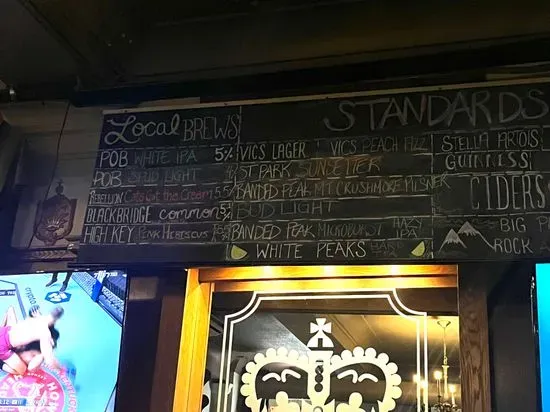 Local BREWS
POB WHITE IPA 5%
POB SPUD LIGHT
REBELLION Cats Got the Cream 5.5%
BLACKBRIDGE common
HIGH KEY PINK HIBISCUS
STANDARDS
VICS LAGER VICS PEACH FIZZ
ST PARK SUNSETTER
BANDED PEAK MT CRUSHMORE PILSNER
BUD LIGHT
BANDED PEAK MICROBURST HAZY IPA
WHITE PEAKS HARD
STELLA ARTOIS
GUINNESS
CIDERS
BIG
ROCK
TOYO